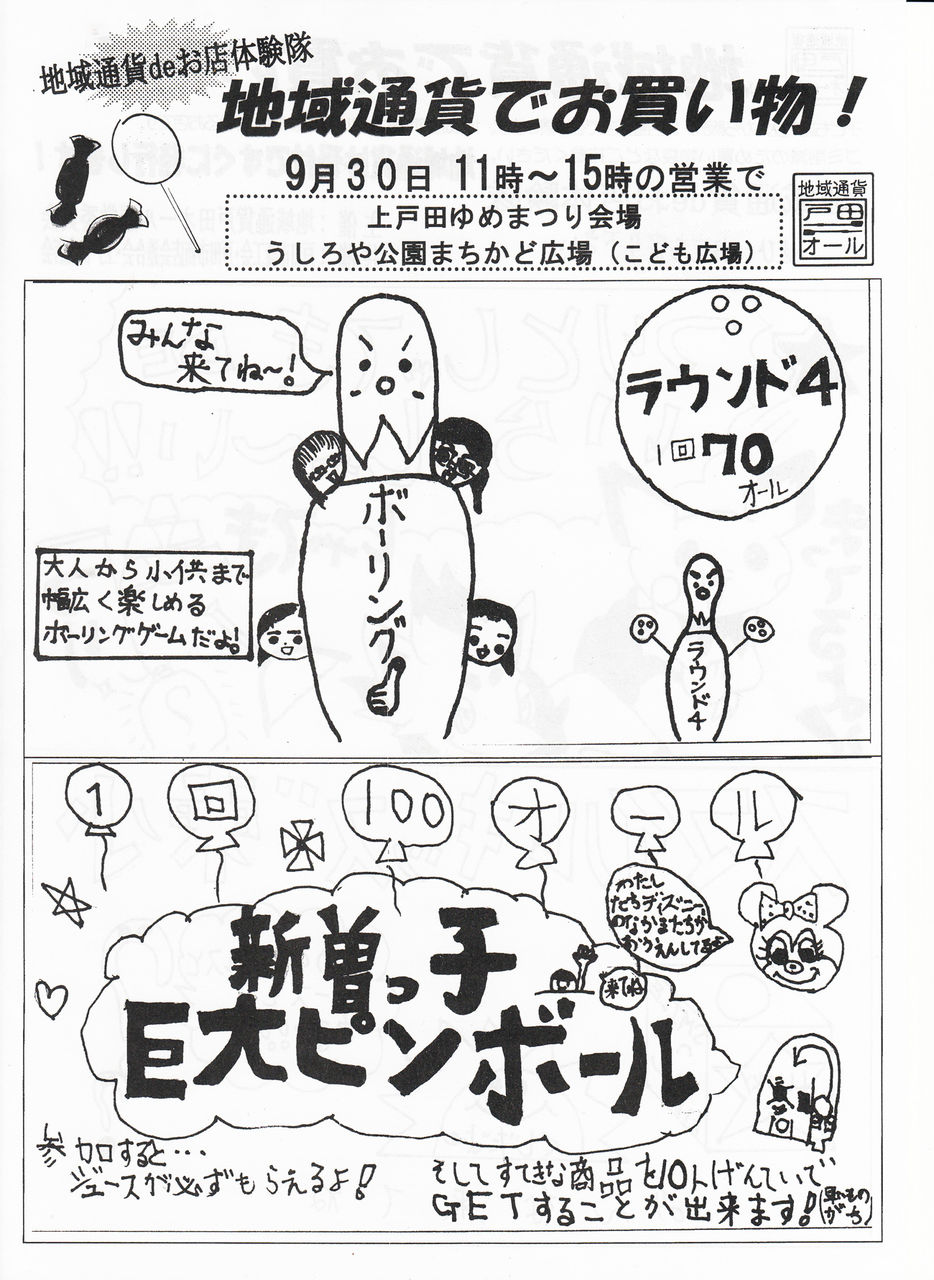 地域通貨deお店体験隊
地域通貨でお買い物！
9月３０日 11時～15時の営業で
上戸田ゆめまつり会場
うしろや公園まちかど広場（こども広場）
地域通貨
戸田
オール
みんな
来てね～!
ラウンド4
1回70
オール
ボーリング
大人から小供まで
幅広く楽しめる
ボーリングゲームだよ!
ラウンド4
1回100オール
わたし
たちディズニー
のなかまたちが
おうえんしてるよ
新曽っ子
来てね
巨大ピンボール
参加すると…
ジュースが必ずもらえるよ!
そしてすてきな商品を10人げんていで
GETすることが出来ます!(早いもの
がち)